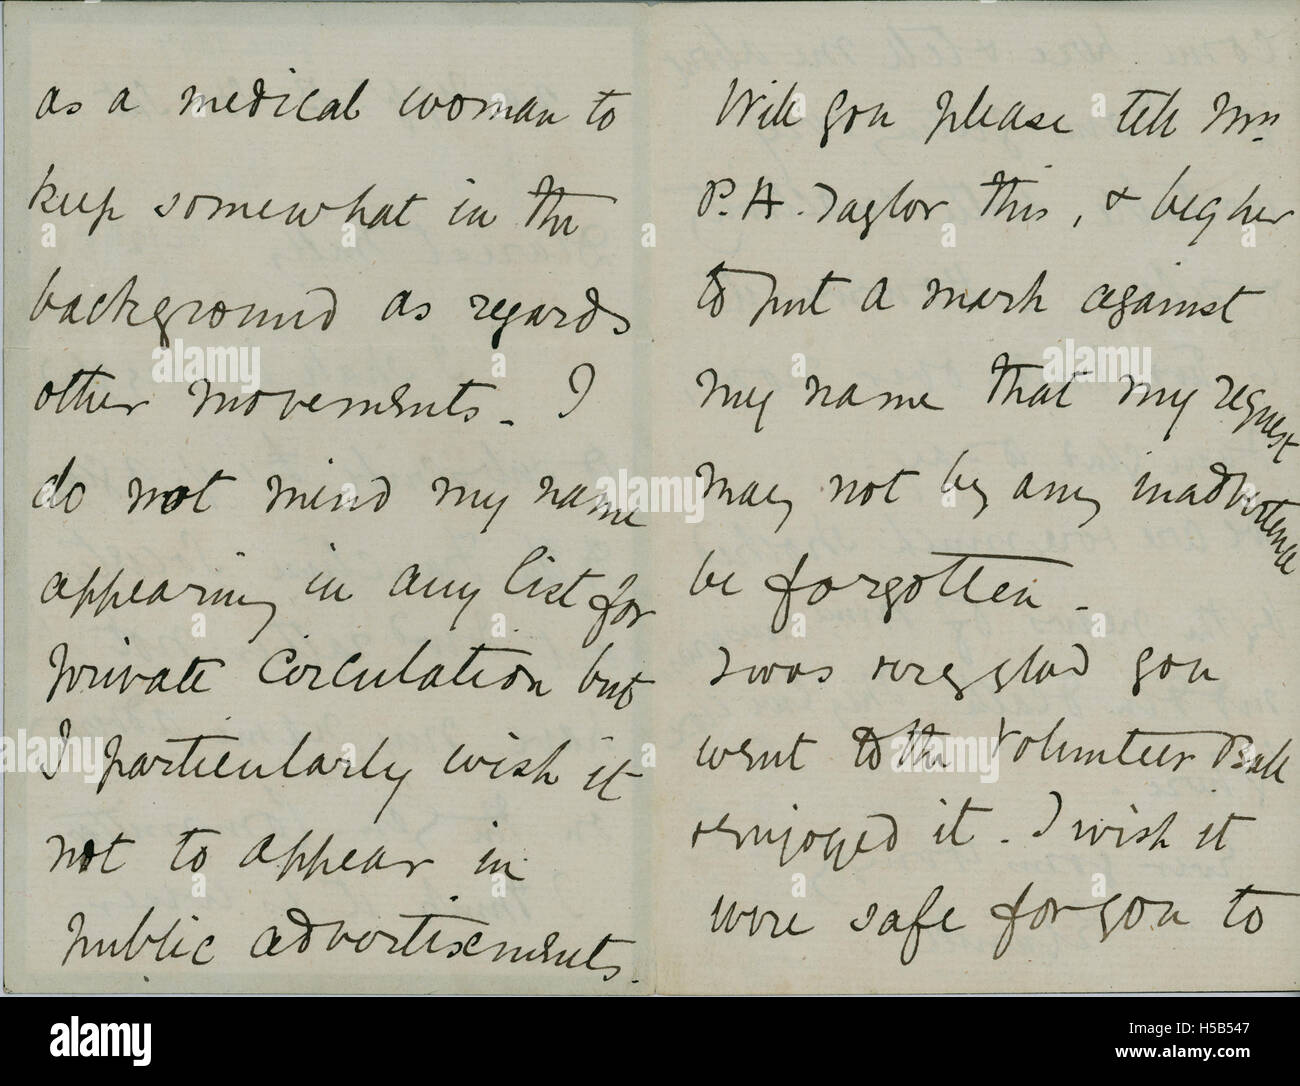 as a medical woman to
keep somewhat in the
background as regards
other movements - I
do not mind my name
appearing in any list for
private circulation but
I particularly wish it
not to appear in
public advertisements.
Will you please tell Mrs
P. A. Taylor this, & beg her
to put a mark against
my name that my request
may not by any inadvertence
be forgotten -
I was very glad you
went to the Volunteer Ball
& enjoyed it. I wish it
were safe for you to
alamy
Image ID: H5B547
www.alamy.com